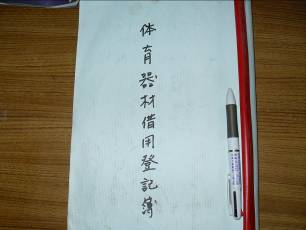 体育器材借用登記簿